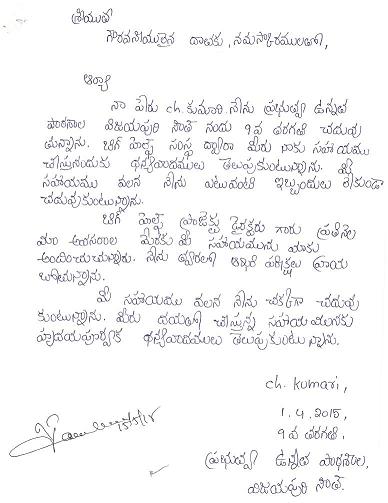 శ్రీయుత
గౌరవనీయులైన దాతకు, నమస్కారములతో,
ఆర్యా
నా పేరు ch. కుమారి. నేను ప్రభుత్వ ఉన్నత
పాఠశాల విజయపురి సౌత్ నందు 9వ తరగతి చదువు
తున్నాను. బిగ్ హెల్ప్ సంస్థ ద్వారా మీరు నాకు సహాయము
చేస్తునందుకు ధన్యవాదములు తెలుపుకుంటున్నాను. మీ
సహాయము వలన నేను ఎటువంటి ఇబ్బందులు లేకుండా
చదువుకుంటున్నాను.
బిగ్ హెల్ప్ ప్రాజెక్టు డైరెక్టరు గారు ప్రతినెల
మా అవసరాల మేరకు మీ సహాయమును మాకు
అందించుచున్నారు. నేను త్వరలో ఆఖరి పరీక్షలు వ్రాయ
బోతున్నాను.
మీ సహాయము వలన నేను చక్కగా చదువు
కుంటున్నాను. మీరు దయతో చేస్తున్న సహాయమునకు
హృదయపూర్వక ధన్యవాదములు తెలుపుకుంటున్నాను.
ch. kumari,
1.4.2015,
9వ తరగతి,
ప్రభుత్వ ఉన్నత పాఠశాల,
విజయపురి సౌత్.